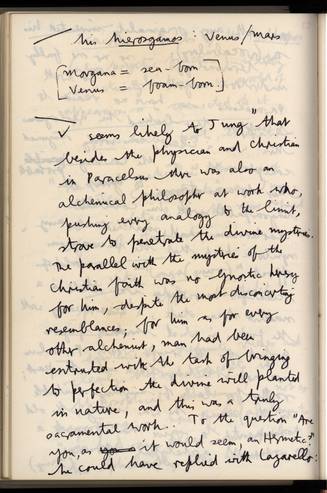 his hierosgamos : Venus/Mars
[Morgana = sea-born
Venus = foam-born.]
✓ seems likely to Jung "that
besides the physician and Christian
in Paracelsus there was also an
alchemical philosopher at work who,
pushing every analogy to the limit,
strove to penetrate the divine mysteries.
The parallel with the mysteries of the
Christian faith was no Gnostic heresy
for him, despite the most disconcerting
resemblances; for him as for every
other alchemist, man had been
entrusted with the task of bringing
to perfection the divine will planted
in nature, and this was a truly
sacramental work. To the question "Are
you, as it would seem, an Hermetic?"
he could have replied with Lazarello: